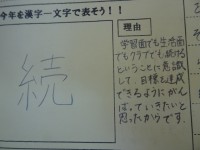 今年を漢字一文字で表そう！！
続
理由
学習面でも生活面
でもクラブでも、続ける
ということに意識
して、目標を達成
できるようにがん
ばっていきたいと
思ったからです。